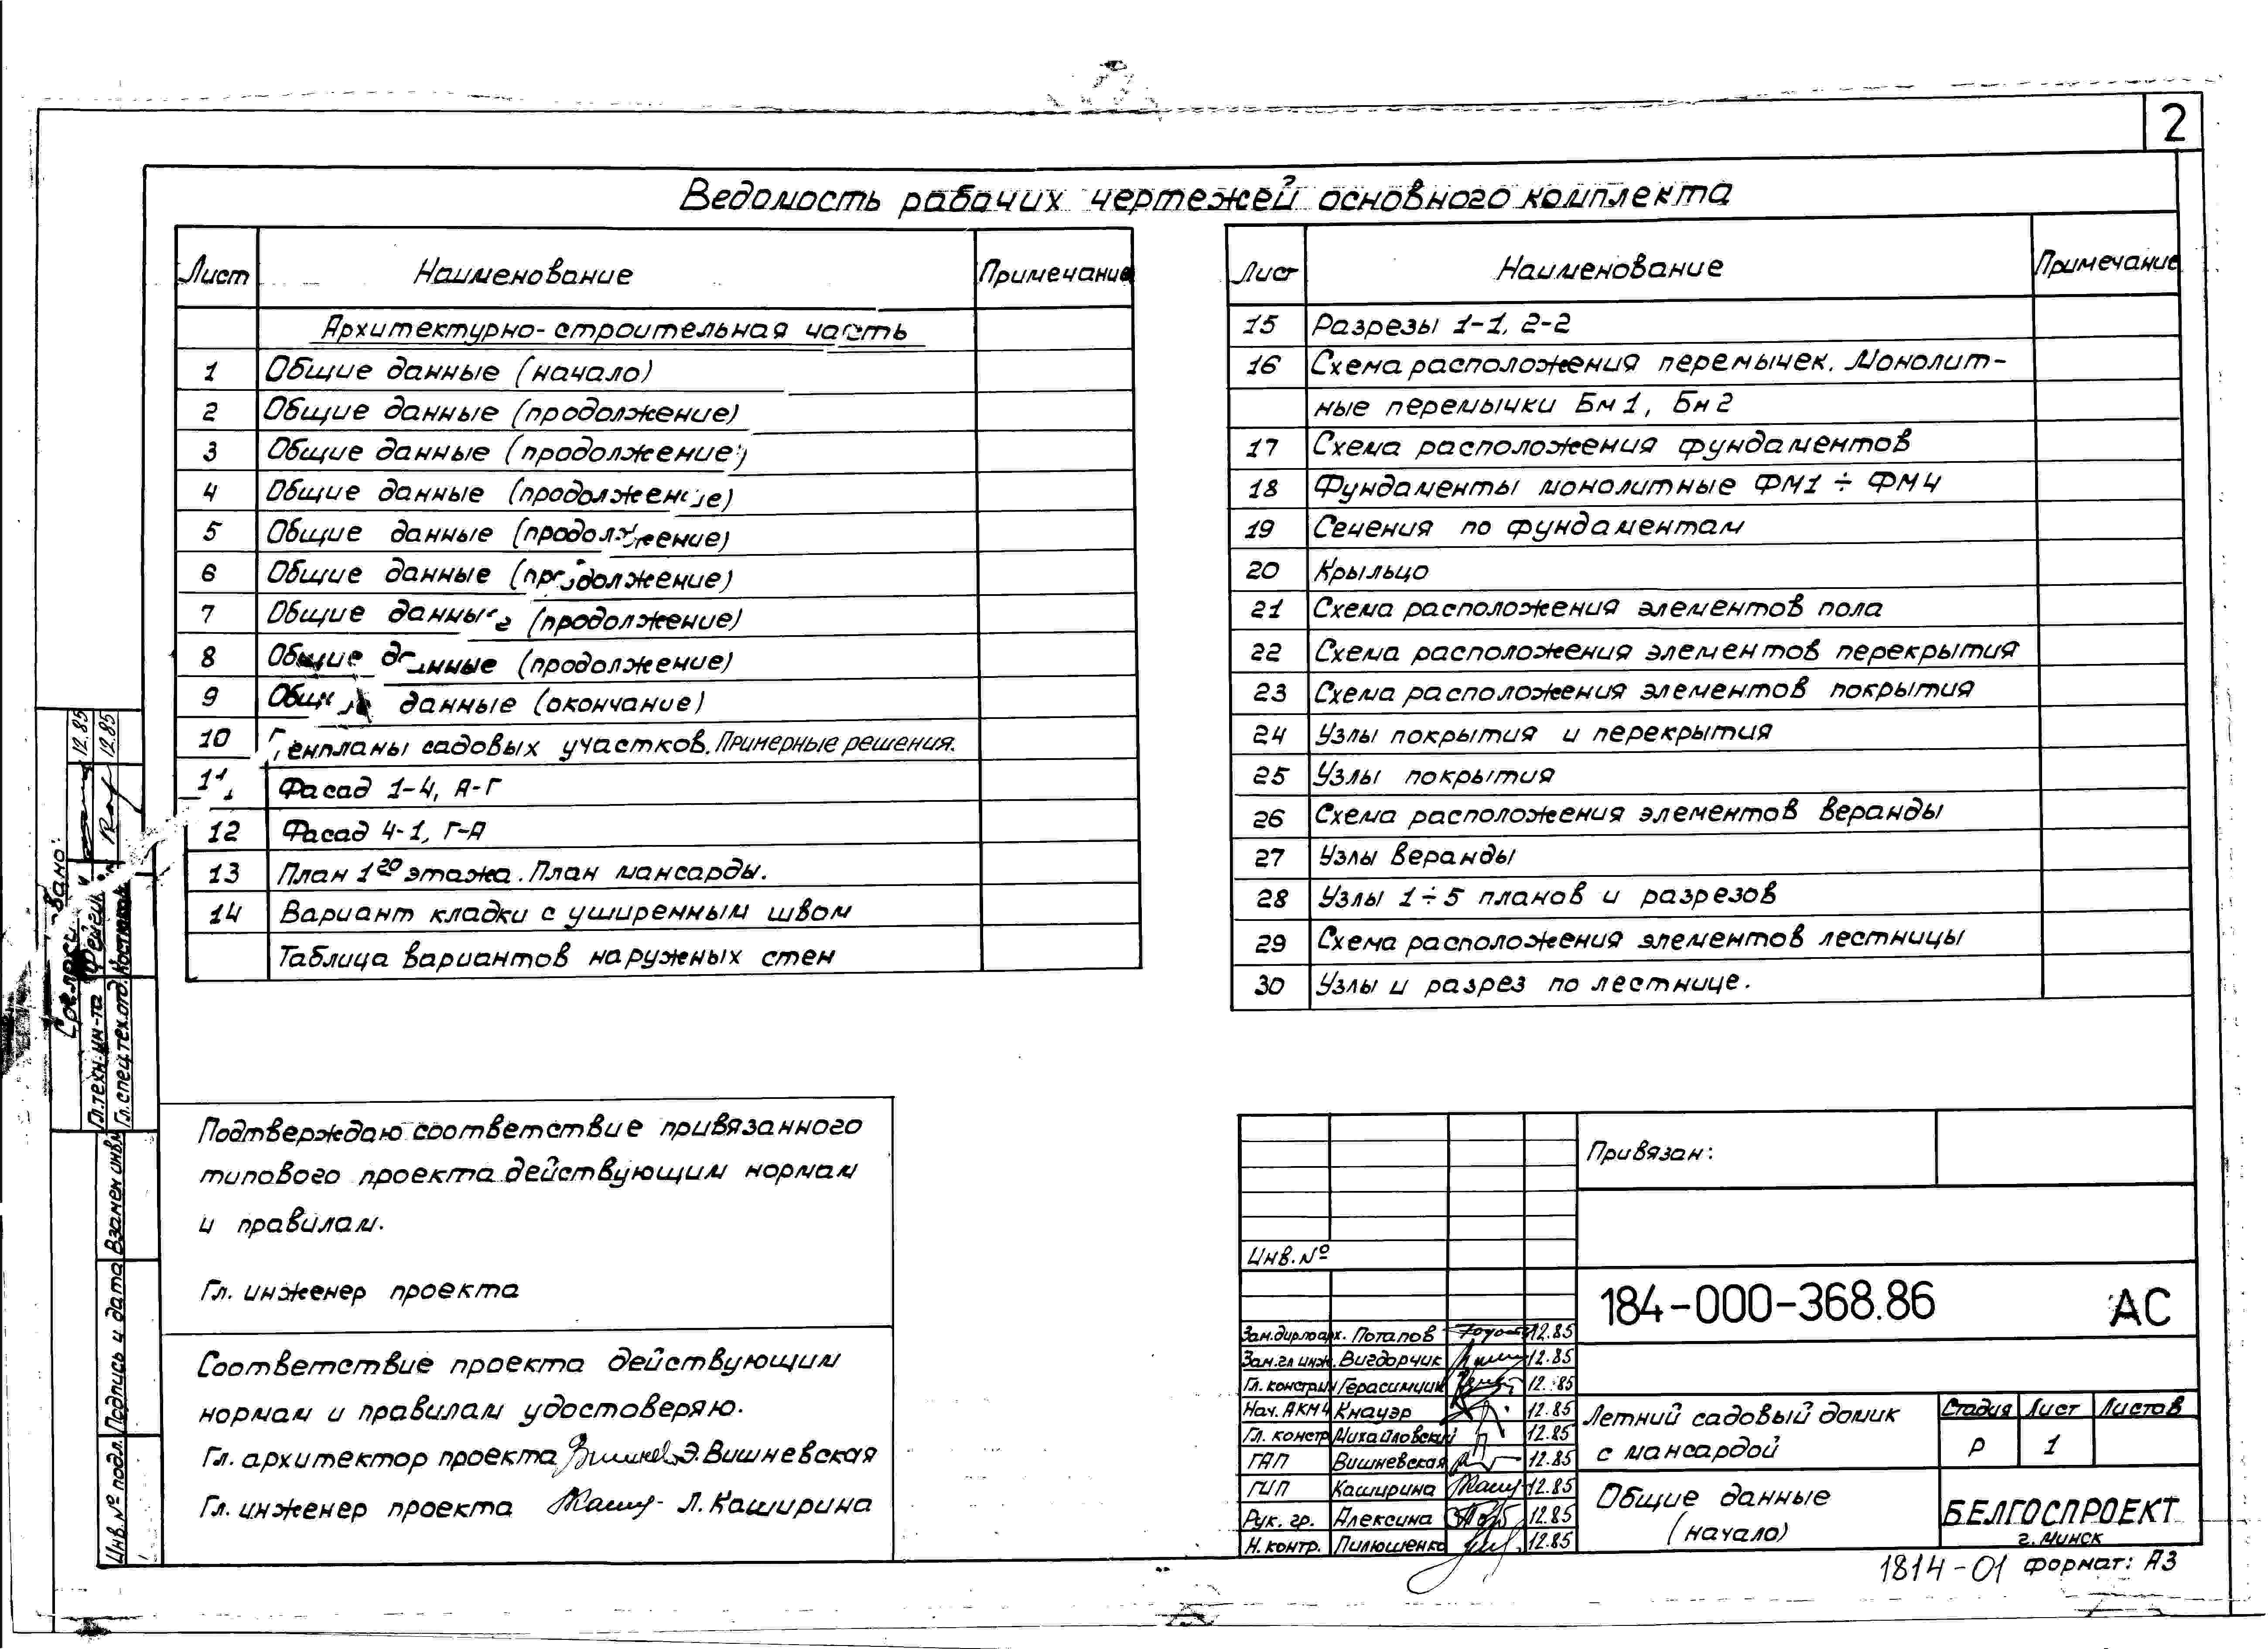 2
Ведомость рабочих чертежей основного комплекта
Лист Наименование Примечание
Архитектурно-строительная часть
1 Общие данные (начало)
2 Общие данные (продолжение)
3 Общие данные (продолжение)
4 Общие данные (продолжение)
5 Общие данные (продолжение)
6 Общие данные (продолжение)
7 Общие данные (продолжение)
8 Общие данные (продолжение)
9 Общие данные (окончание)
10 Генпланы садовых участков. Примерные решения.
11 Фасад 1-4, А-Г
12 Фасад 4-1, Г-А
13 План 1го этажа. План мансарды.
14 Вариант кладки с уширенным швом
Таблица вариантов наружных стен
Лист Наименование Примечание
15 Разрезы 1-1, 2-2
16 Схема расположения перемычек. Монолит-
ные перемычки Бм1, Бм2
17 Схема расположения фундаментов
18 Фундаменты монолитные ФМ1 ÷ ФМ4
19 Сечения по фундаментам
20 Крыльцо
21 Схема расположения элементов пола
22 Схема расположения элементов перекрытия
23 Схема расположения элементов покрытия
24 Узлы покрытия и перекрытия
25 Узлы покрытия
26 Схема расположения элементов веранды
27 Узлы веранды
28 Узлы 1÷5 планов и разрезов
29 Схема расположения элементов лестницы
30 Узлы и разрез по лестнице.
Гл. техн. ин-та 12.85
Гл. спец. тех. отд. 12.85
Взамен инв №
Подпись и дата
Инв. № подл.
Подтверждаю соответствие привязанного
типового проекта действующим нормам
и правилам.
Гл. инженер проекта
Соответствие проекта действующим
нормам и правилам удостоверяю.
Гл. архитектор проекта Э. Вишневская
Гл. инженер проекта Л. Каширина
Привязан:
Инв. №
184-000-368.86 АС
Зам. дир. по арх. Потапов 12.85
Зам. гл инж. Вигдорчик 12.85
Гл. констр. ин Герасимчик 12.85
Нач. АКМ4 Кнауэр 12.85
Гл. констр Михайловский 12.85
ГАП Вишневская 12.85
ГИП Каширина 12.85
Рук. гр. Алексина 12.85
Н. контр. Пилюшенко 12.85
Летний садовый домик
с мансардой
Стадия Лист Листов
Р 1
Общие данные
(начало)
БЕЛГОСПРОЕКТ
г. Минск
1814-01 формат: А3